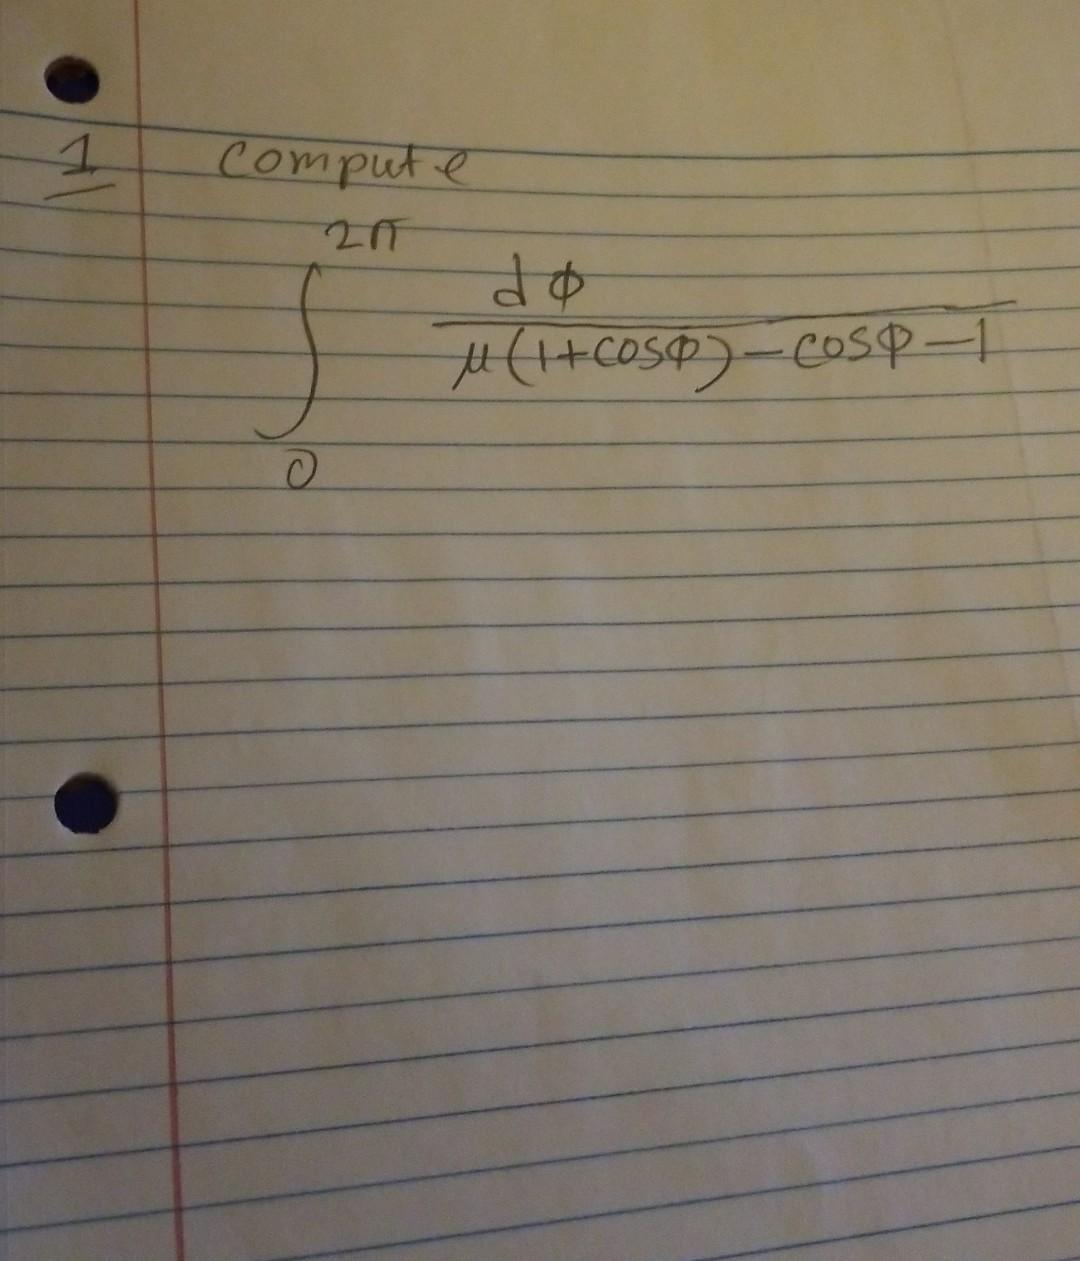 1 compute
2π
∫ dφ
μ(1+cosφ)-cosφ-1
0